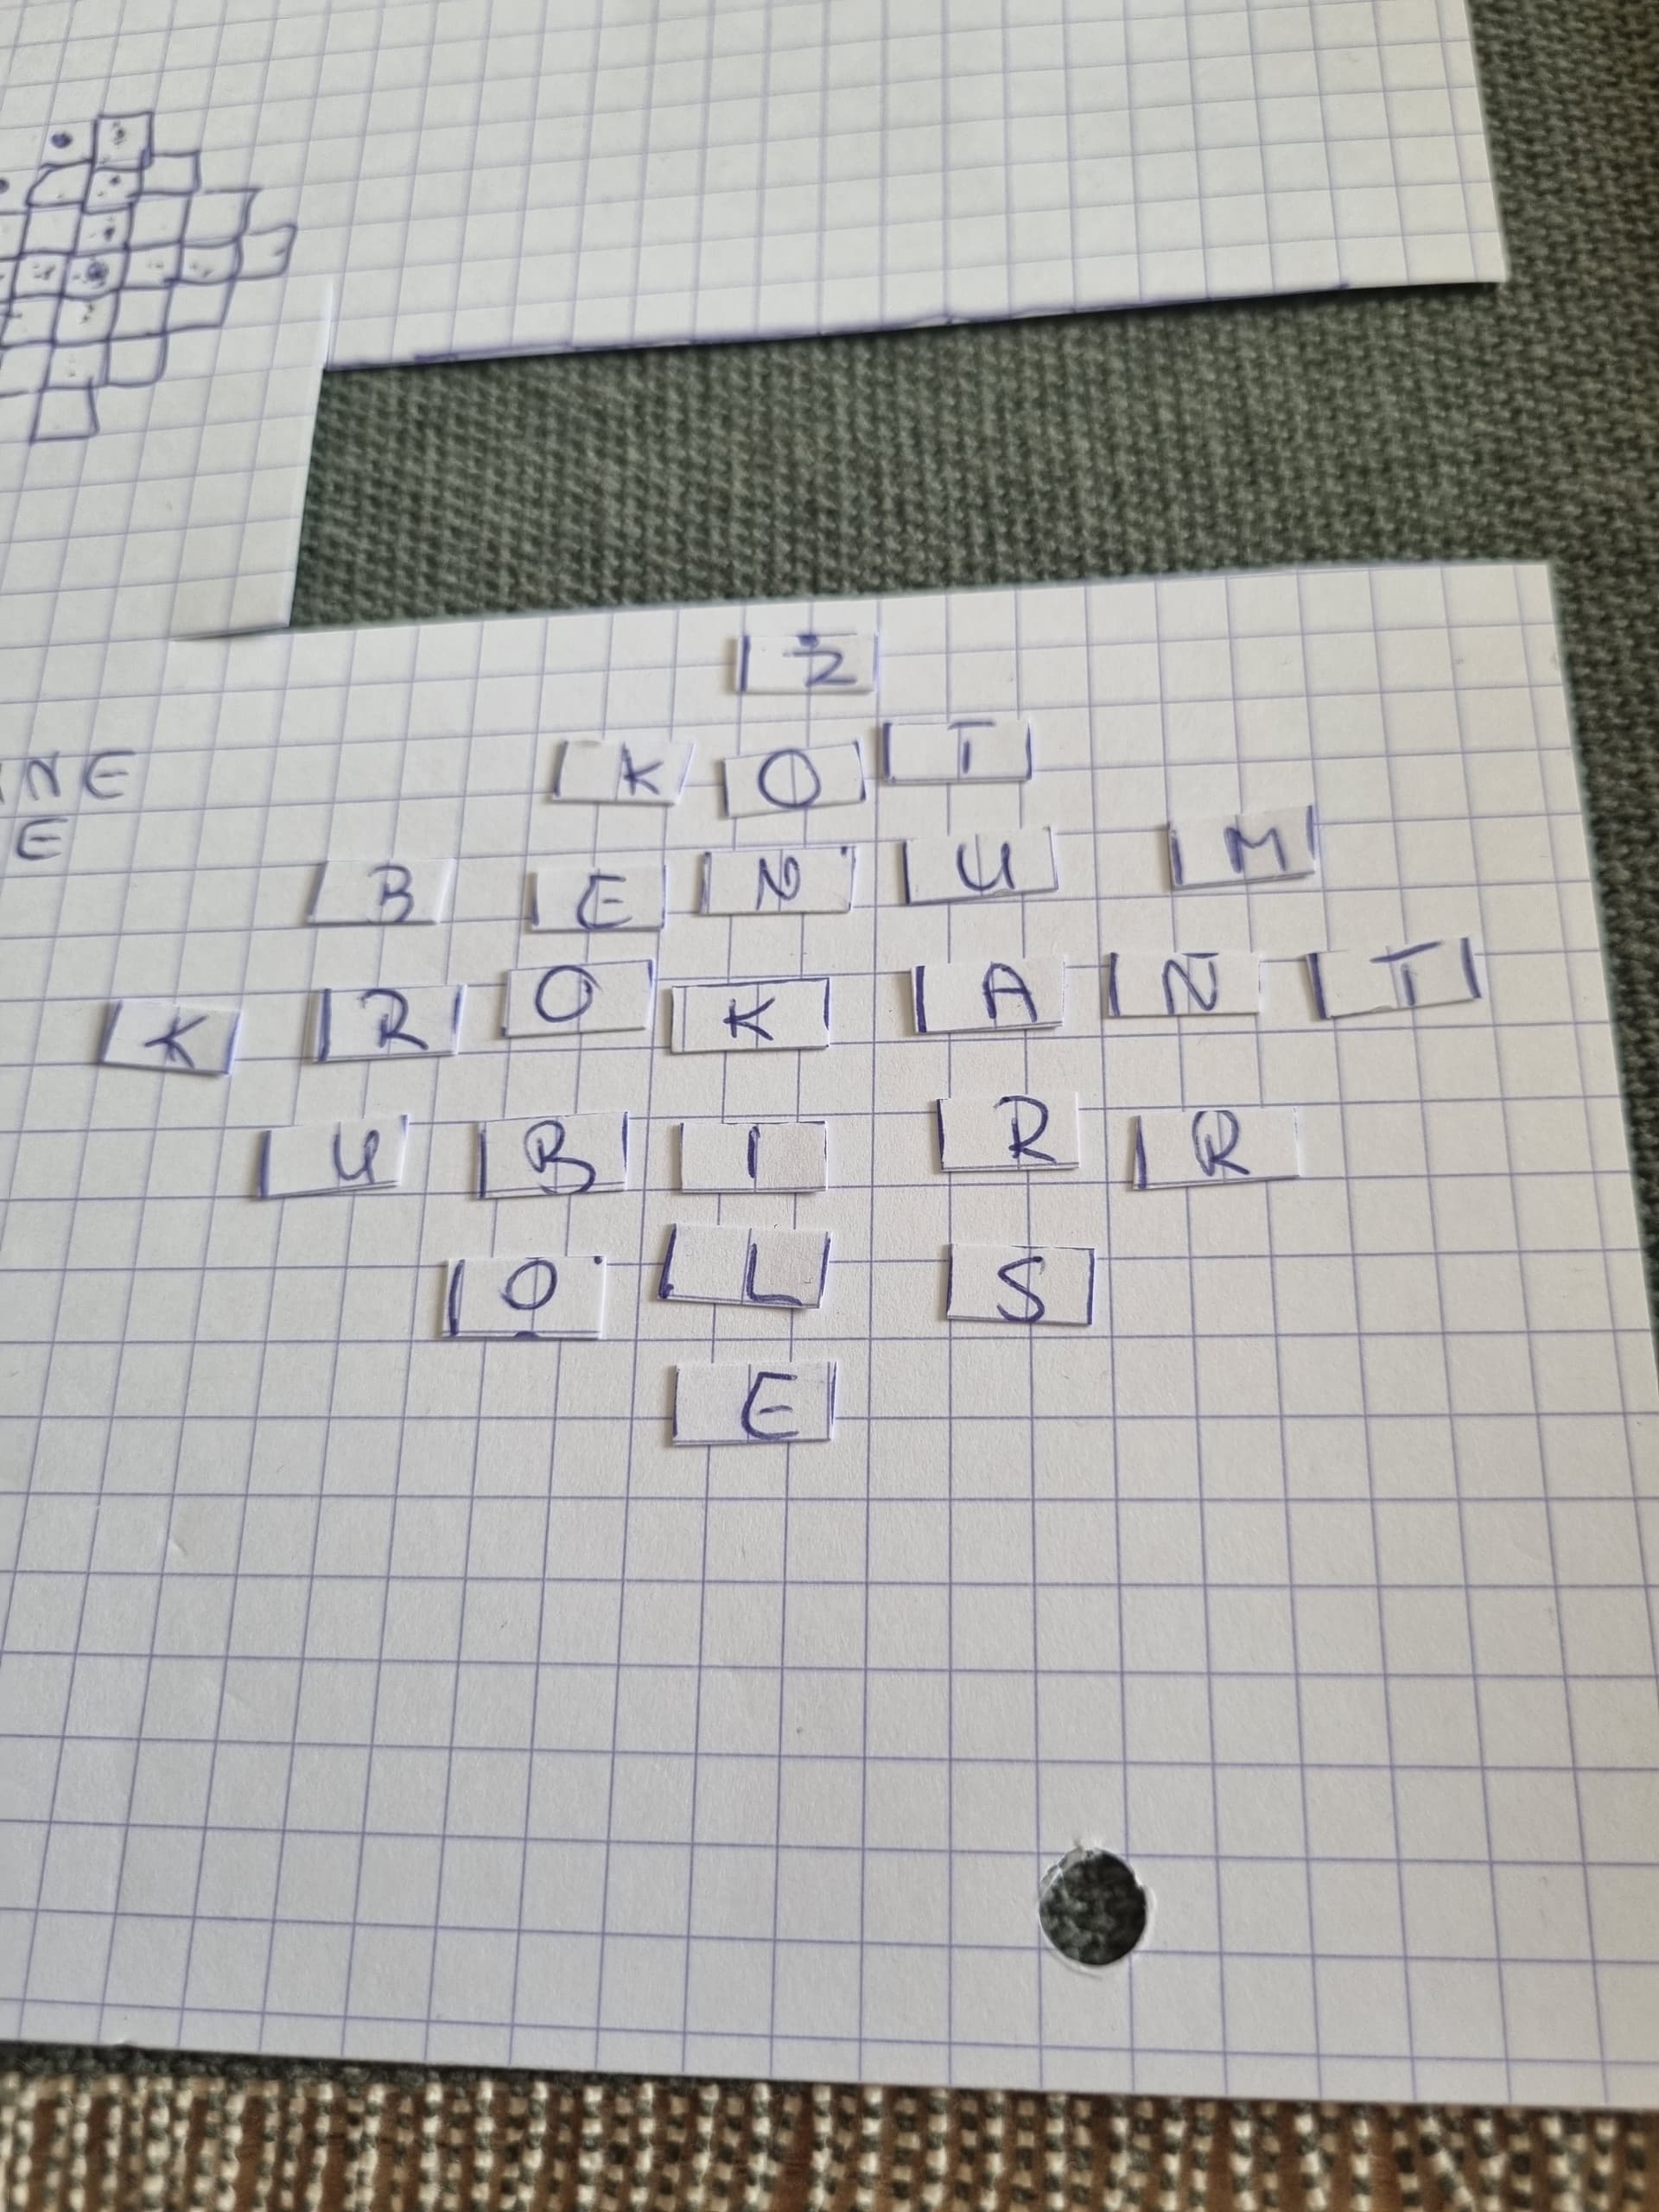 Ż
K O T
B E N U M
K R O K A N T
U B I R R
O L S
E
NE
E